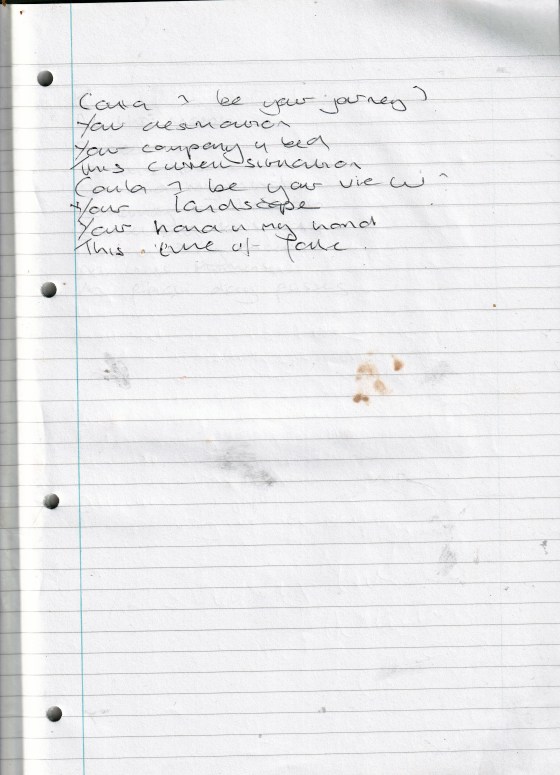 Could I be your journey?
Your destination
Your company in bed
This current situation
Could I be your view
Your landscape
Your hand in my hand
This of